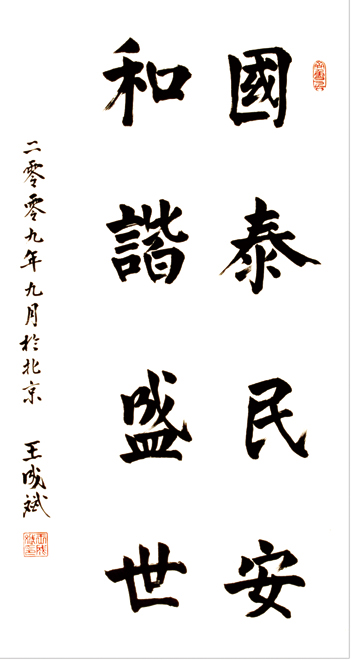 國泰民安
和諧盛世
二零零九年九月於北京 王成斌